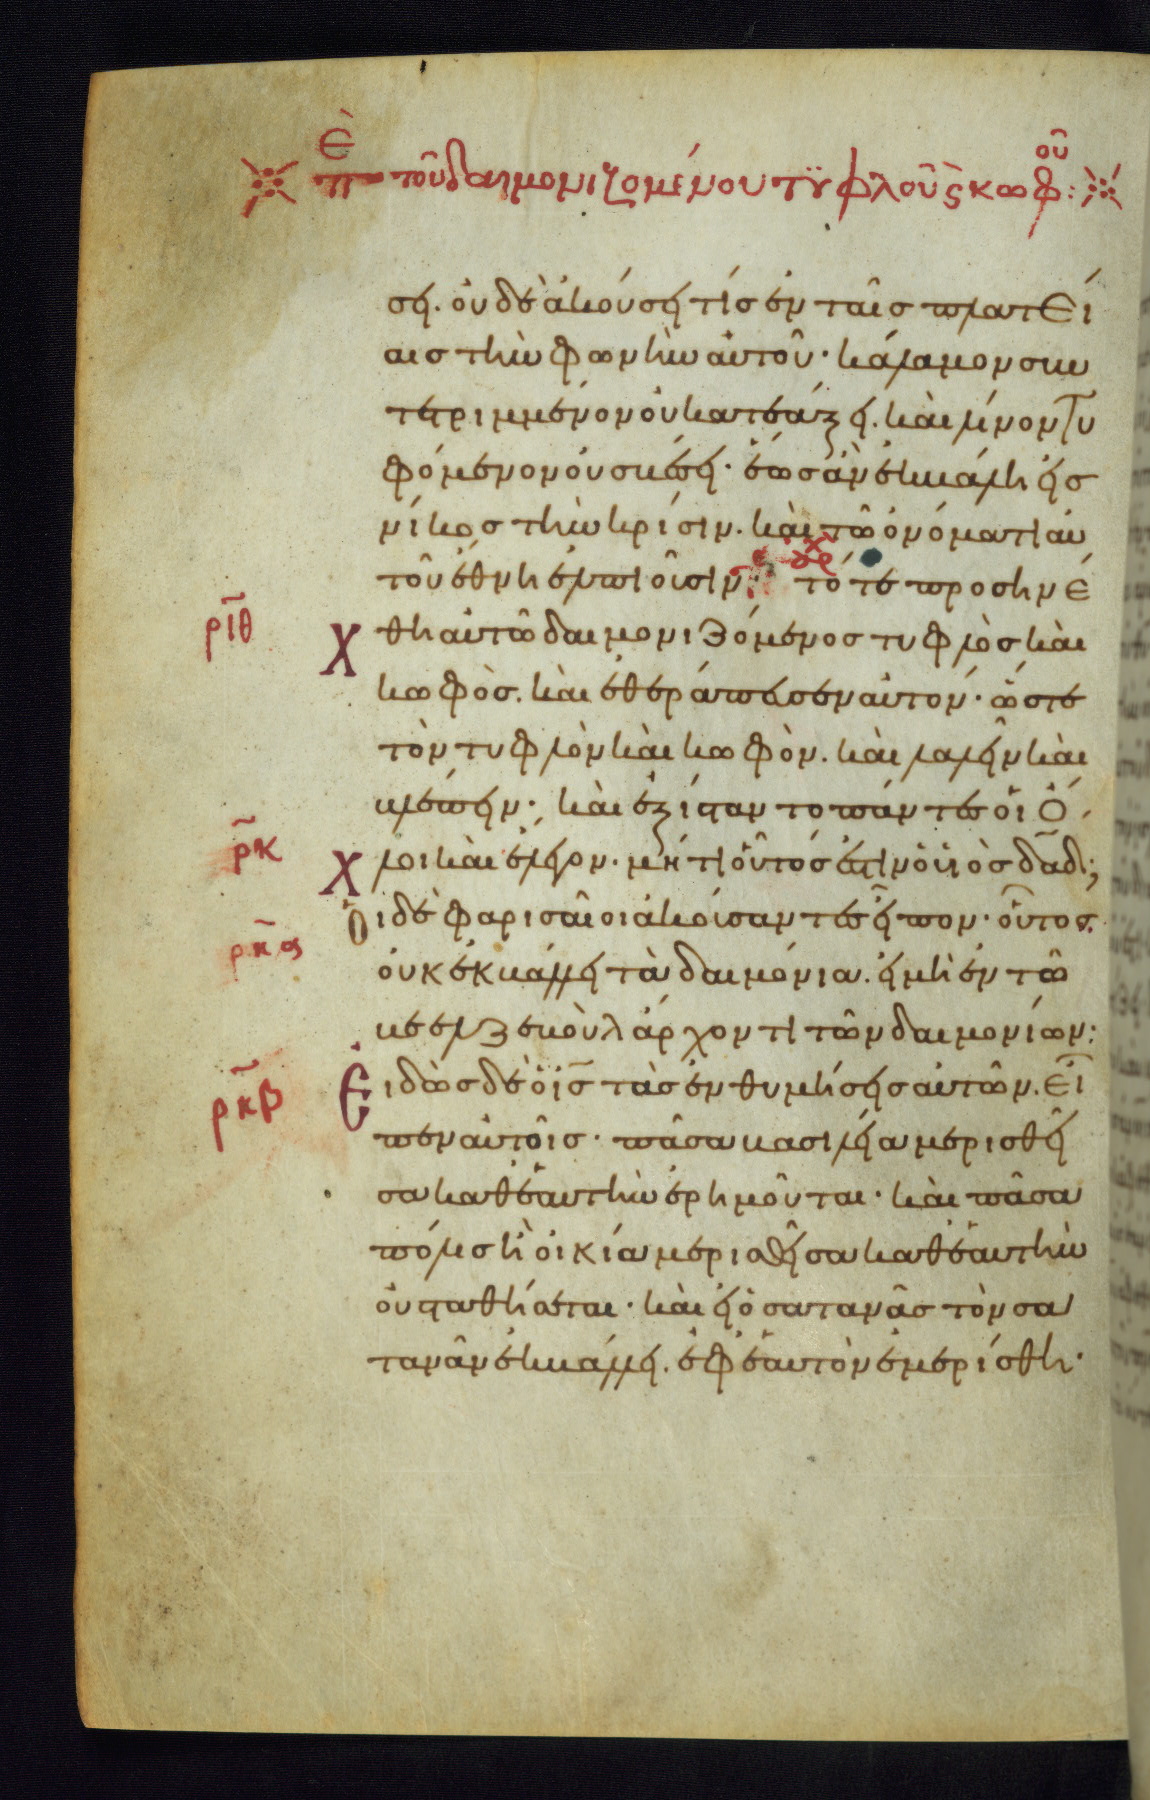 Ὲ
π τοῦ δαιμονιζομένου τυφλοῦ ϛ κωφοῦ:
σει. οὐδὲ ἀκούσει τίσ ἐν ταῖσ πλατεί
αισ τὴν φωνὴν αὐτοῦ· κάλαμον συν
τετριμμένον οὐ κατεάξει. καὶ λίνον τυ
φόμενον οὐ σβέσει· ἕωσ ἂν ἐκβάλη εἰσ
νίκοσ τὴν κρίσιν. καὶ τῶ ὀνόματι αὐ
τοῦ ἔθνη ἐλπιοῦσιν· τότε προσηνέ
ριθ
χθη αὐτῶ δαιμονιζόμενοσ τυφλὸσ καὶ
κωφὸσ. καὶ ἐθεράπευσεν αὐτόν· ὥστε
τὸν τυφλὸν καὶ κωφὸν. καὶ λαλεῖν καὶ
βλέπειν· καὶ ἐξίσταντο πάντεσ οἱ ὄ
ρκ
χλοι καὶ ἔλεγον· μήτι οὗτόσ ἐστιν ὁ υἱὸσ δαδ;
Οἱ δὲ φαρισαῖοι ἀκούσαντεσ εἶπον· οὗτοσ
ρκα
οὐκ ἐκβάλλει τὰ δαιμόνια. εἰ μὴ ἐν τῶ
βεελζεβοὺλ ἄρχοντι τῶν δαιμονίων:
ρκβ
Εἰδὼσ δὲ ὁ ισ τὰσ ἐνθυμήσεισ αὐτῶν. εἶ
πεν αὐτοῖσ· πᾶσα βασιλεία μερισθεῖ
σα καθ ἑαυτὴν ἐρημοῦται· καὶ πᾶσα
πόλισ ἢ οἰκία μερισθεῖσα καθ ἑαυτὴν
οὐ σταθήσεται· καὶ εἰ ὁ σατανᾶσ τὸν σα
τανᾶν ἐκβάλλει. ἐφ ἑαυτὸν ἐμερίσθη·